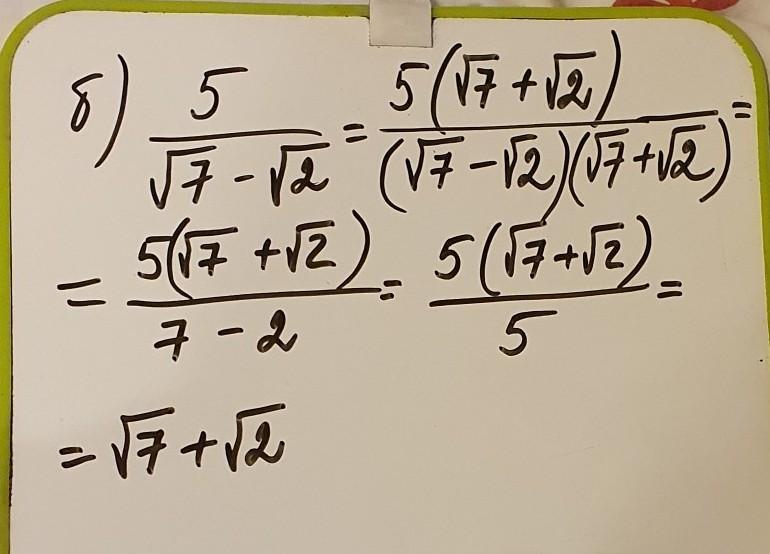 б) 5/(√7 - √2) = 5(√7 + √2)/((√7 - √2)(√7 + √2)) =
= 5(√7 + √2)/(7 - 2) = 5(√7 + √2)/5 =
= √7 + √2